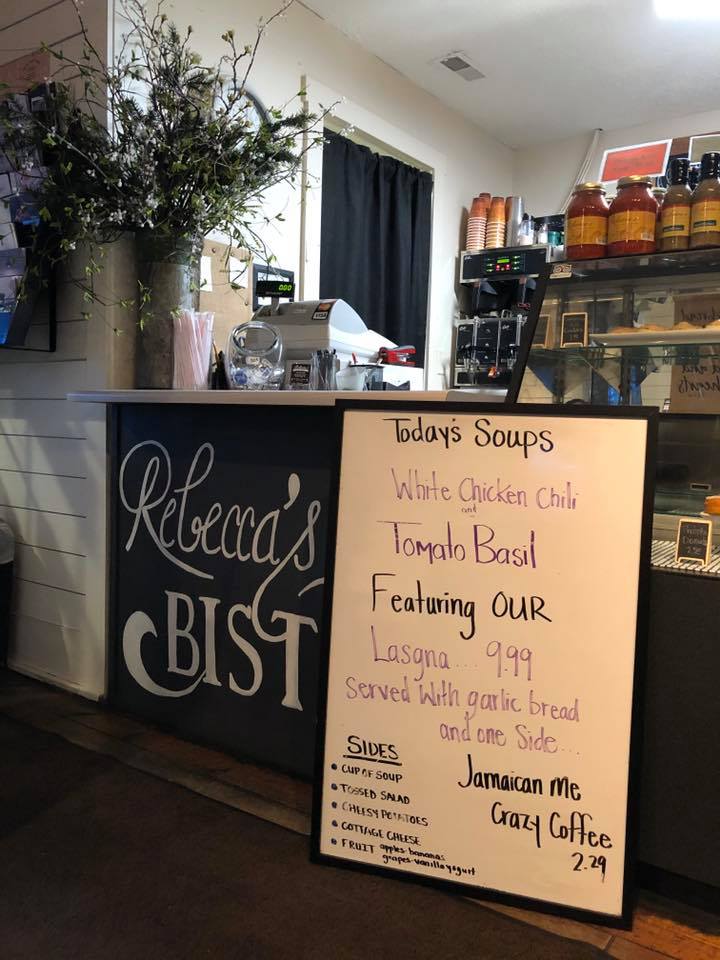 Rebecca's
BIST
000
VISA
Today's Soups
White Chicken Chili
and
Tomato Basil
Featuring OUR
Lasgna... 9.99
Served With garlic bread
and one Side...
SIDES
• CUP OF SOUP
• TOSSED SALAD
• CHEESY POTATOES
• COTTAGE CHEESE
• FRUIT apples-bananas
grapes-vanilla yogurt
Jamaican me
Crazy Coffee
2.29